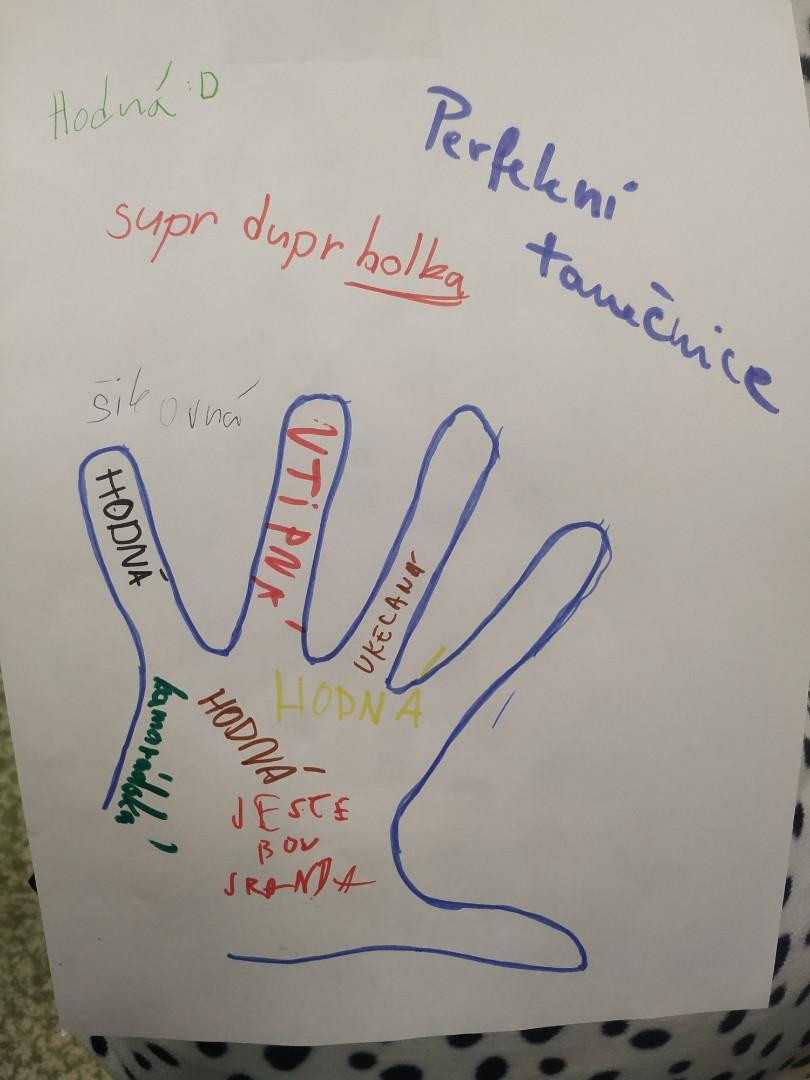 Hodná :D
Perfekní
tanečnice
supr dupr holka
šikovná
HODNÁ
VTiPNÁ
UKECANÁ
HODNÁ
HODNÁ
kamarádská
JESTE
SRANDA